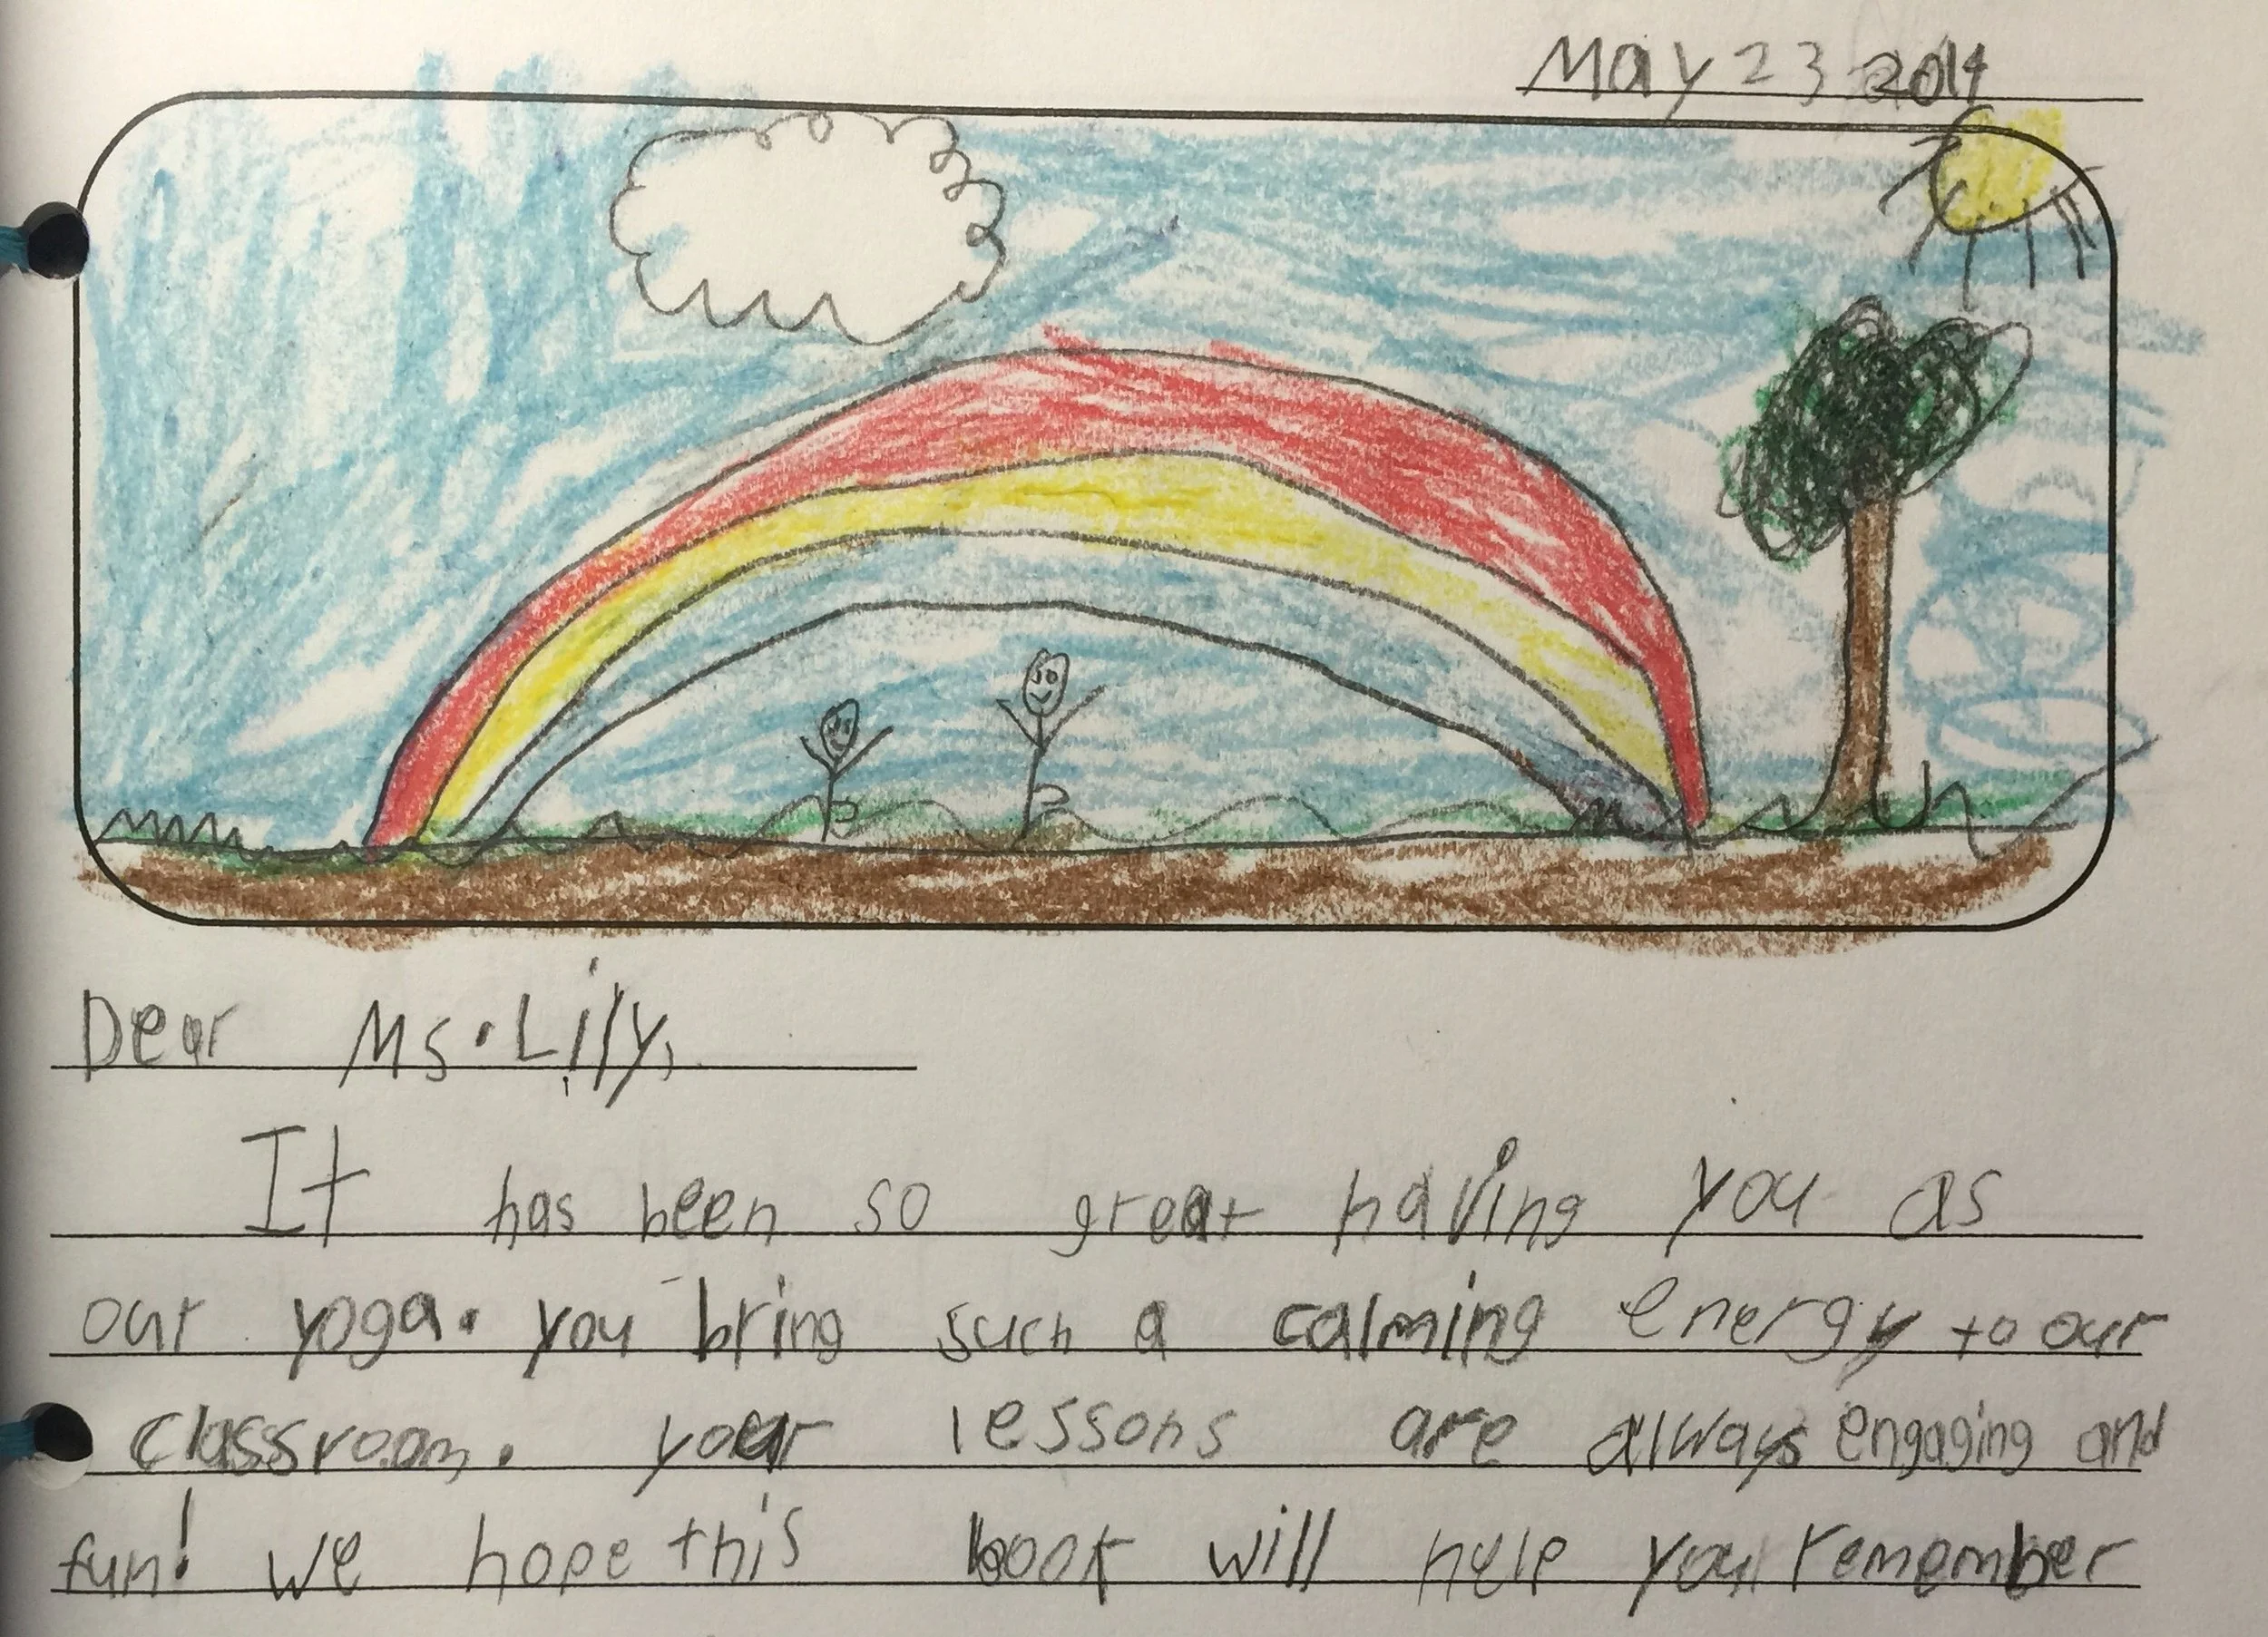 May 23 2014
Dear Ms. Lily,
It has been so great having you as
our yoga. you bring such a calming energy to our
classroom. your lessons are always engaging and
fun! we hope this book will help you remember